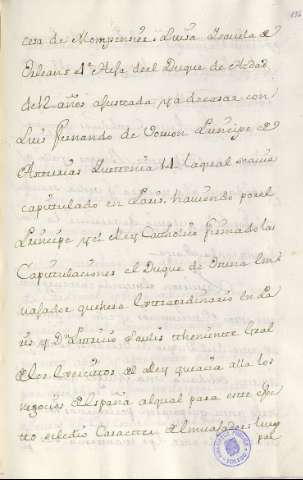 cesa de Mompensier Luisa Isavela de
Orleans 4ª Hija del Duque de
de 12 años ajustada ya de casar con
Luis Fernando de Borvon Principe de
Asturias la qual
capitulado en Paris, haviendo por el
Principe y el Rey Catholico firmado las
Capitulaciones el Duque de Osuna Em
vajador que hera Extraordinario en Pa
ris y Dn Patricio Laules theniente Gral
de los Exercitos del Rey que avia alla los
negocios de España al qual para este efec
to se le dio Caracter de Emvajador luego
que